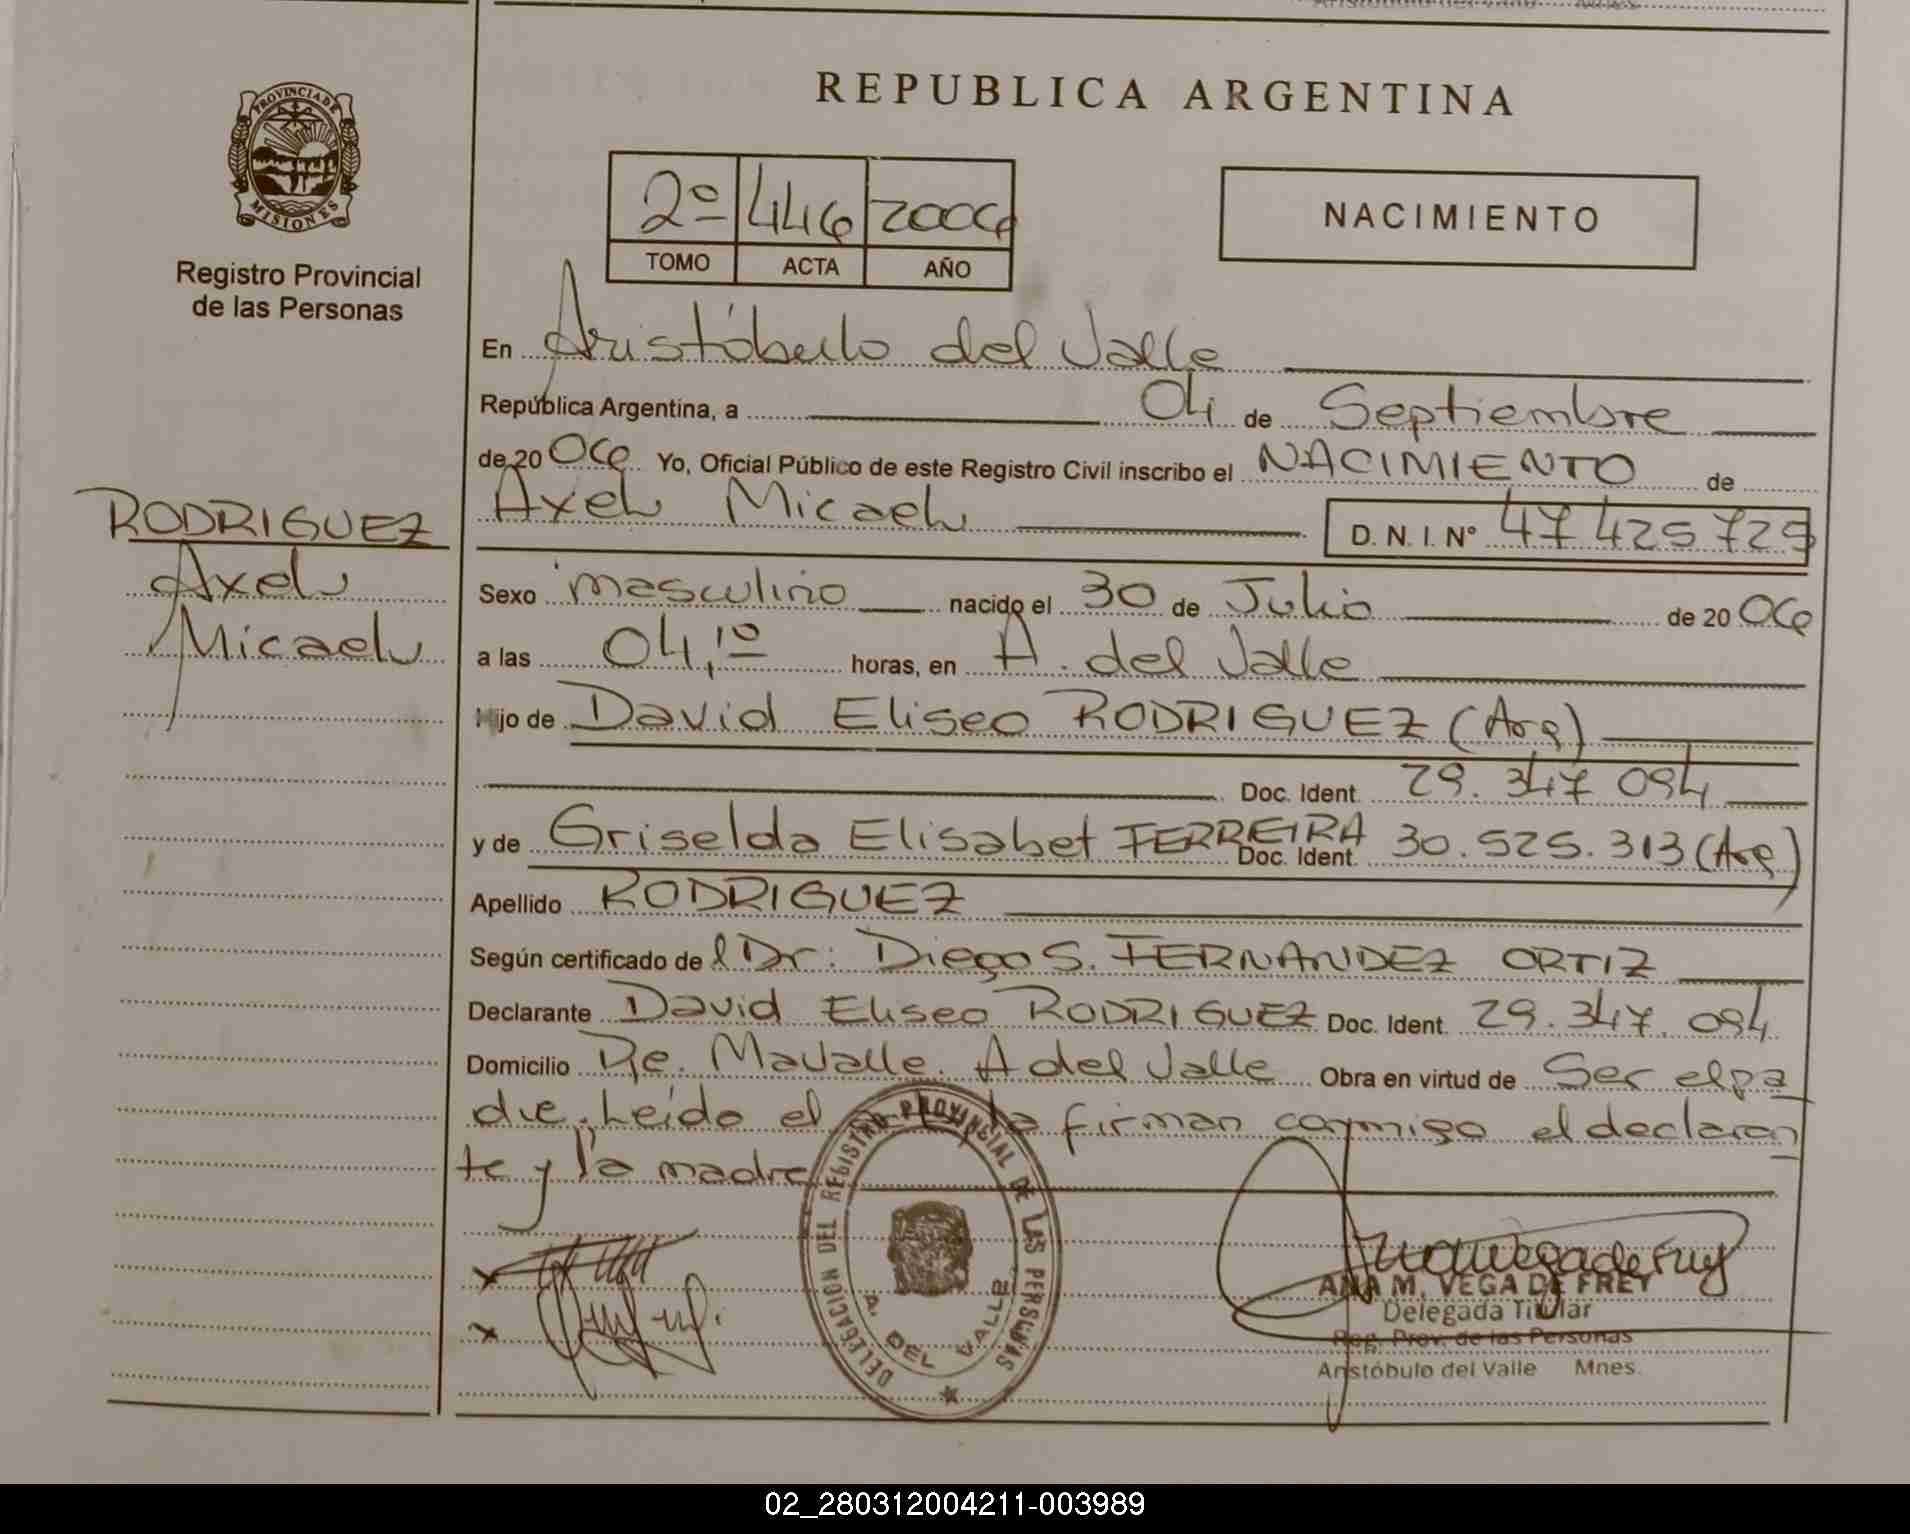 REPUBLICA ARGENTINA
PROVINCIA DE
MISIONES
Registro Provincial
de las Personas
2º 446 2006
TOMO ACTA AÑO
NACIMIENTO
En Aristóbulo del Valle
República Argentina, a 04 de Septiembre
de 20 06 Yo, Oficial Público de este Registro Civil inscribo el NACIMIENTO de
Axel Micael D. N. I. Nº 47 425 729
RODRIGUEZ
Axel
Micael
Sexo masculino nacido el 30 de Julio de 20 06
a las 04,10 horas, en A. del Valle
Hijo de David Eliseo RODRIGUEZ (Arg)
Doc. Ident. 29.347 094
y de Griselda Elisabet FERREIRA Doc. Ident. 30.525.313 (Arg)
Apellido RODRIGUEZ
Según certificado de l Dr: Diego S. FERNANDEZ ORTIZ
Declarante David Eliseo RODRIGUEZ Doc. Ident. 29.347.094
Domicilio Pje. Mavalle. A del Valle Obra en virtud de Ser el pa
dre. Leído el firman conmigo el declaran
te y la madre
DELEGACION DEL REGISTRO PROVINCIAL DE LAS PERSONAS
A. DEL VALLE
ANA M. VEGA DE FREY
Delegada Titular
Reg. Prov. de las Personas
Aristóbulo del Valle Mnes.
02_280312004211-003989